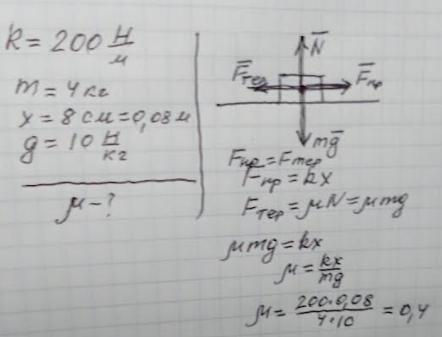 k = 200 Н/м
m = 4 кг
x = 8 см = 0,08 м
g = 10 Н/кг
μ - ?
N̅
F̅тер
F̅пр
mg̅
Fпр = Fтер
Fпр = kx
Fтер = μN = μmg
μmg = kx
μ = kx/mg
μ = 200·0,08/4·10 = 0,4